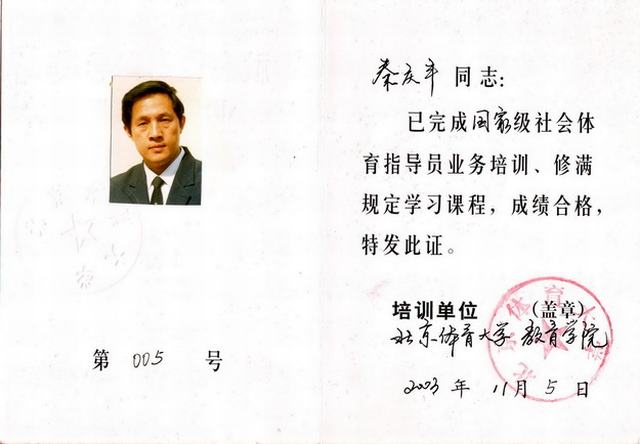 第 005 号
秦庆丰 同志:
已完成国家级社会体
育指导员业务培训、修满
规定学习课程，成绩合格，
特发此证。
培训单位 (盖章)
北京体育大学 教育学院
2003 年 11 月 5 日
北京体育大学